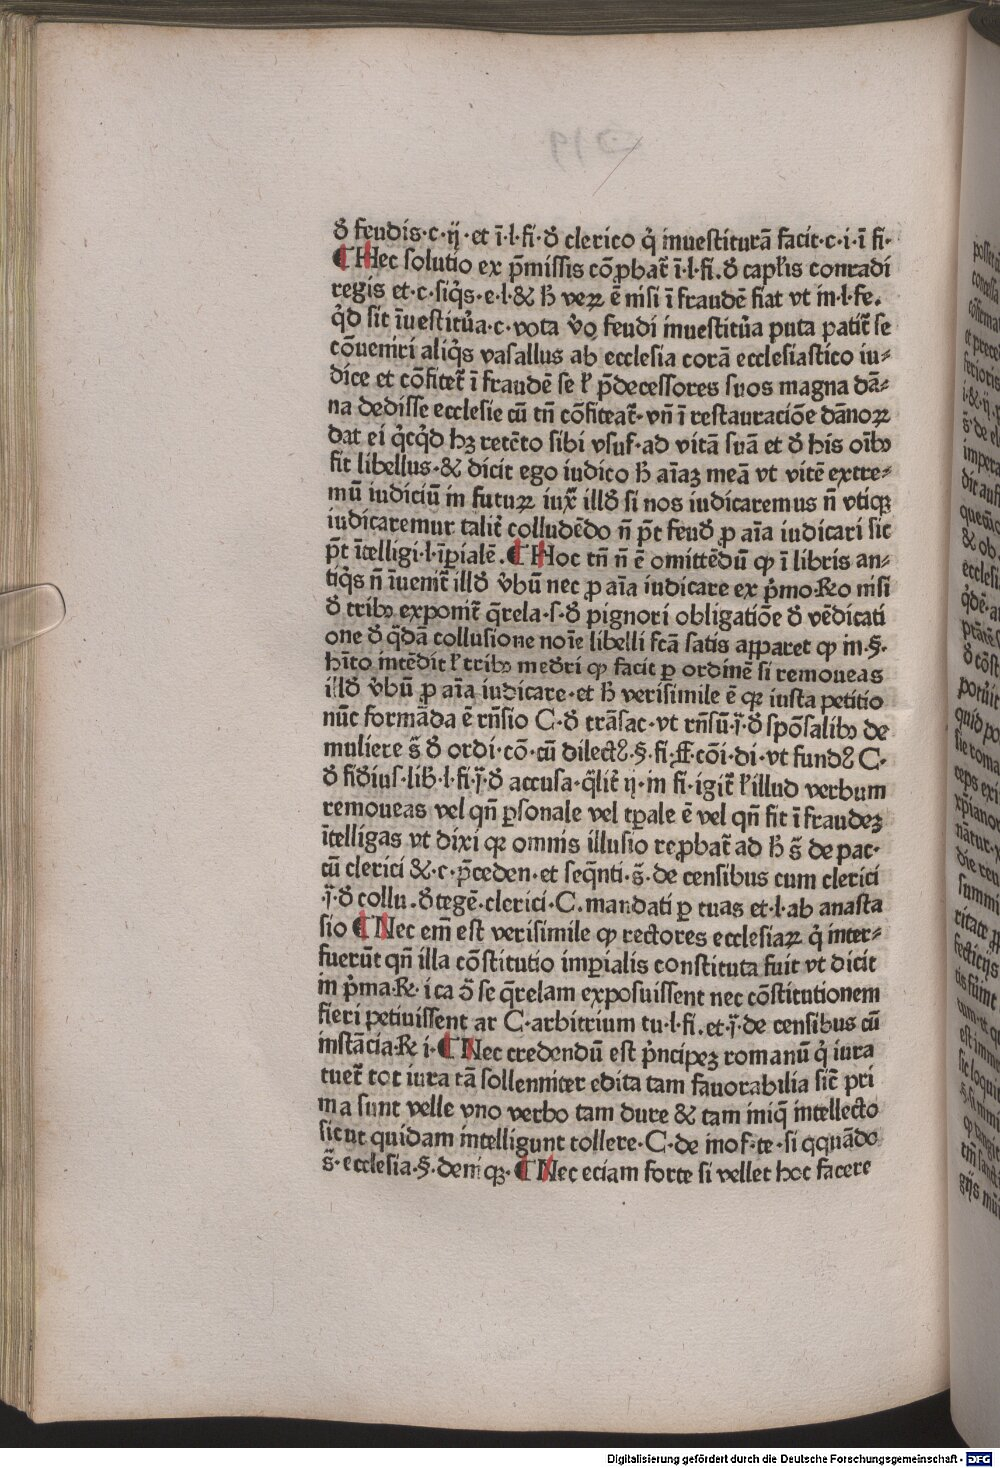 ẟ feudis·c·ij·et ī·l·fi·ẟ clerico q̇ inuestiturā facit·c·i·ī fi·
¶ Hec solutio ex p̄missis cōꝓbat᷑ ī·l·fi·ẟ capl̓is conradi
regis et·c·siq̇s·e·l·& ħ veꝝ ē nisi ī fraudē fiat vt in·l·fe.
q̇d sit īuestitu̓a·c·vota v̓o feudi inuestitu̓a puta patit᷑ se
cōueniri aliq̇s vasallus ab ecclesia corā ecclesiastico iu⸗
dice et cōfitet᷑ ī fraudē se l̓ p̄decessores suos magna dā⸗
na dedisse ecclesie cū tn̄ cōfiteat᷑·vn̄ ī restauraciōe dānoꝝ
dat ei q̇cq̇d hꝫ retēto sibi vsuf·ad vitā suā et ẟ his oib̄ꝫ
fit libellus·& dicit ego iudico ħ aīaꝫ meā vt vitē extre⸗
mū iudiciū in futuꝝ iux̄ illẟ si nos iudicaremus n̄ vtiqꝫ
iudicaremur talit᷑ colludēdo n̄ p̄t feuẟ ꝓ aīa iudicari sic
p̄t ītelligi·l·īꝑialē. ¶ Hoc tn̄ n̄ ē omittēdū ꝙ ī libris an⸗
tiq̇s n̄ īuenit᷑ illẟ v̓bū nec ꝓ aīa iudicare ex p̓mo·℞o nisi
ẟ tribꝫ exponit᷑ q̄rela·s·ẟ pignori obligatiōe ẟ vēdicati
one ẟ q̄dā collusione noīe libelli fc̄ā satis apparet ꝙ in·§·
hīto intēdit l̓ tribꝫ mederi ꝙ facit ꝑ ordinē si remoueas
illẟ v̓bū ꝓ aīa iudicare·et ħ verisimile ē qꝫ iusta petitio
nūc formāda ē rn̄sio C·ẟ trāsac·vt rn̄sū·j̄·ẟ spōsalibꝫ de
muliere s̄ ẟ ordi·cō·cū dilectꝰ·§·fi·ff·cōi·di·vt fundꝰ C·
ẟ fiẟius·lib̄·l·fi·j̄·ẟ accusa·q̄lit᷑ ij·in fi·igit᷑ l̓ illud verbum
remoueas vel qn̄ ꝑsonale vel tꝑale ē vel qn̄ fit ī fraudeꝫ
ītelligas vt dixi qꝫ omnis illusio reꝓbat᷑ ad ħ s̄ de pac·
cū clerici &·c·p̄ceden·et seq̄nti·s̄·de censibus cum clerici
·j̄·ẟ collu·ẟtegē·clerici·C·mandati ꝑ tuas et·l·ab anasta
sio ¶ Nec em̄ est verisimile ꝙ rectores ecclesiaꝝ q̇ inter⸗
fuerūt qn̄ illa cōstitutio imꝑialis constituta fuit vt dicit
in p̓ma·℞·i ca ō se q̄relam exposuissent nec cōstitutionem
fieri petiuissent ar C·arbitrium tu·l·fi·et·j̄·de censibus cū
instācia·℞ i·¶ Nec credendū est p̓ncipeꝫ romanū q̇ iura
tuet᷑ tot iura tā sollenniter edita tam fauorabilia sic̄t pri
ma sunt velle vno verbo tam dure & tam iniq̄ intellecto
sicut quidam intelligunt tollere·C·de inof·te·si qquādo
s̄·ecclesia·§·deniqꝫ· ¶ Nec eciam forte si vellet hoc facere
Digitalisierung gefördert durch die Deutsche Forschungsgemeinschaft - DFG